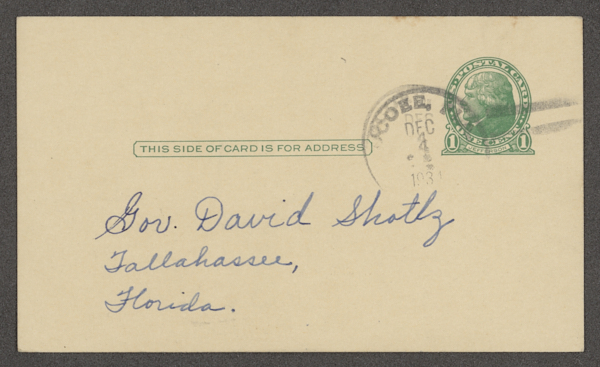 U.S. POSTAL CARD
1 JEFFERSON 1
DEC
4
193
THIS SIDE OF CARD IS FOR ADDRESS
Gov. David Sholtz
Tallahassee,
Florida.